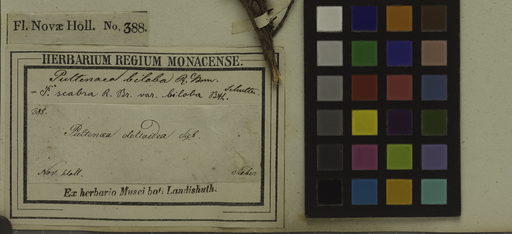 Fl. Novæ Holl. No. 388.
HERBARIUM REGIUM MONACENSE.
Pultenaea biloba R. Br.
= P. scabra R. Br. var. biloba Bth.
388.
Pultenæa deltoidea
Nov. Holl. Sieber
Ex herbario Musei bot. Landishuth.